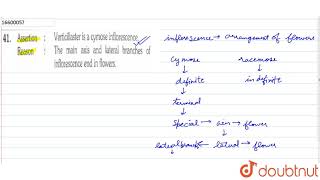 16600057
41. Assertion : Verticillaster is a cymose inflorescence
Reason : The main axis and lateral branches of
inflorescence end in flowers.
inflorescence → arrangement of flowers
Cymose racemose
definite indefinite
terminal
special → axis → flower
lateral branch ← lateral → flower
doubtnut